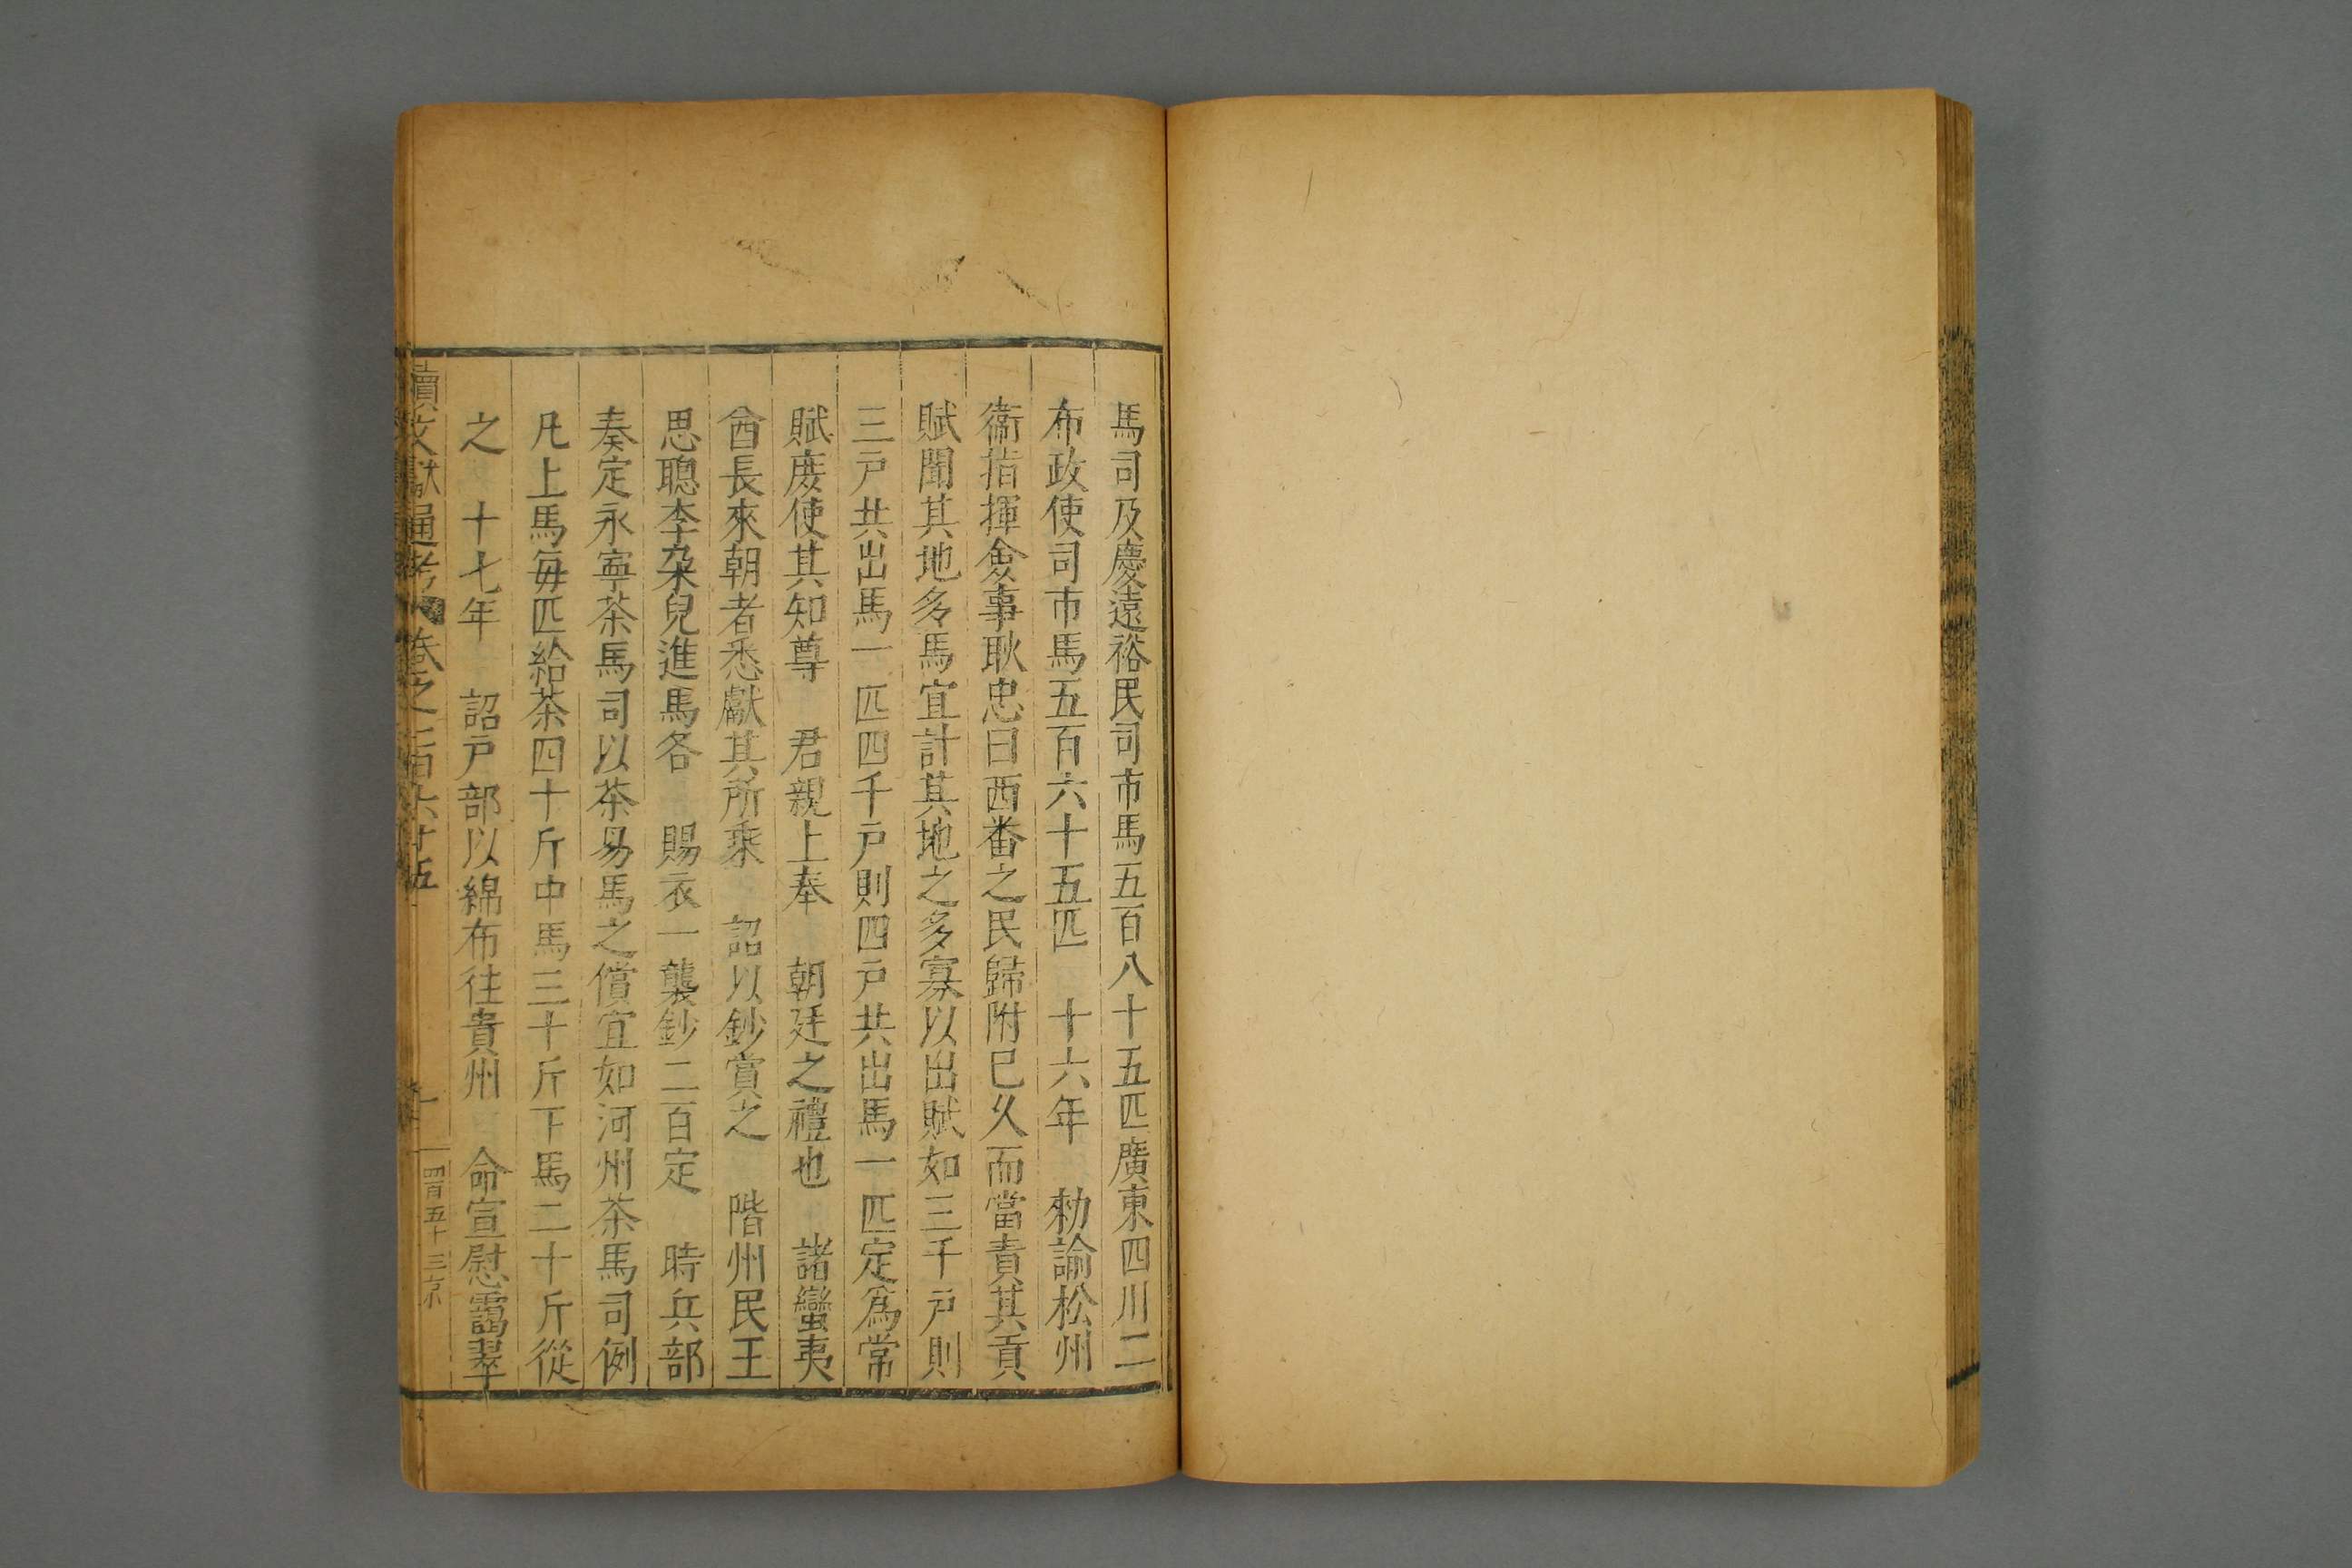 馬司及慶遠裕民司市馬五百八十五匹廣東四川二
布政使司市馬五百六十五匹　十六年　勑諭松州
衞指揮僉事耿忠曰西番之民歸附巳久而當責其貢
賦聞其地多馬宜計其地之多寡以出賦如三千戸則
三戸共出馬一匹四千戸則四戸共出馬一匹定爲常
賦庻使其知尊　君親上奉　朝廷之禮也　諸蠻夷
酋長來朝者悉獻其所乘　詔以鈔賞之　階州民王
思聰李朶兒進馬各　賜衣一襲鈔二百定　時兵部
奏定永寧茶馬司以茶易馬之價宜如河州茶馬司例
凡上馬每匹給茶四十斤中馬三十斤下馬二十斤從
之　十七年　詔戸部以綿布往貴州　命宣慰靄翠
續文獻通考　卷之一百六十五
四百五十三